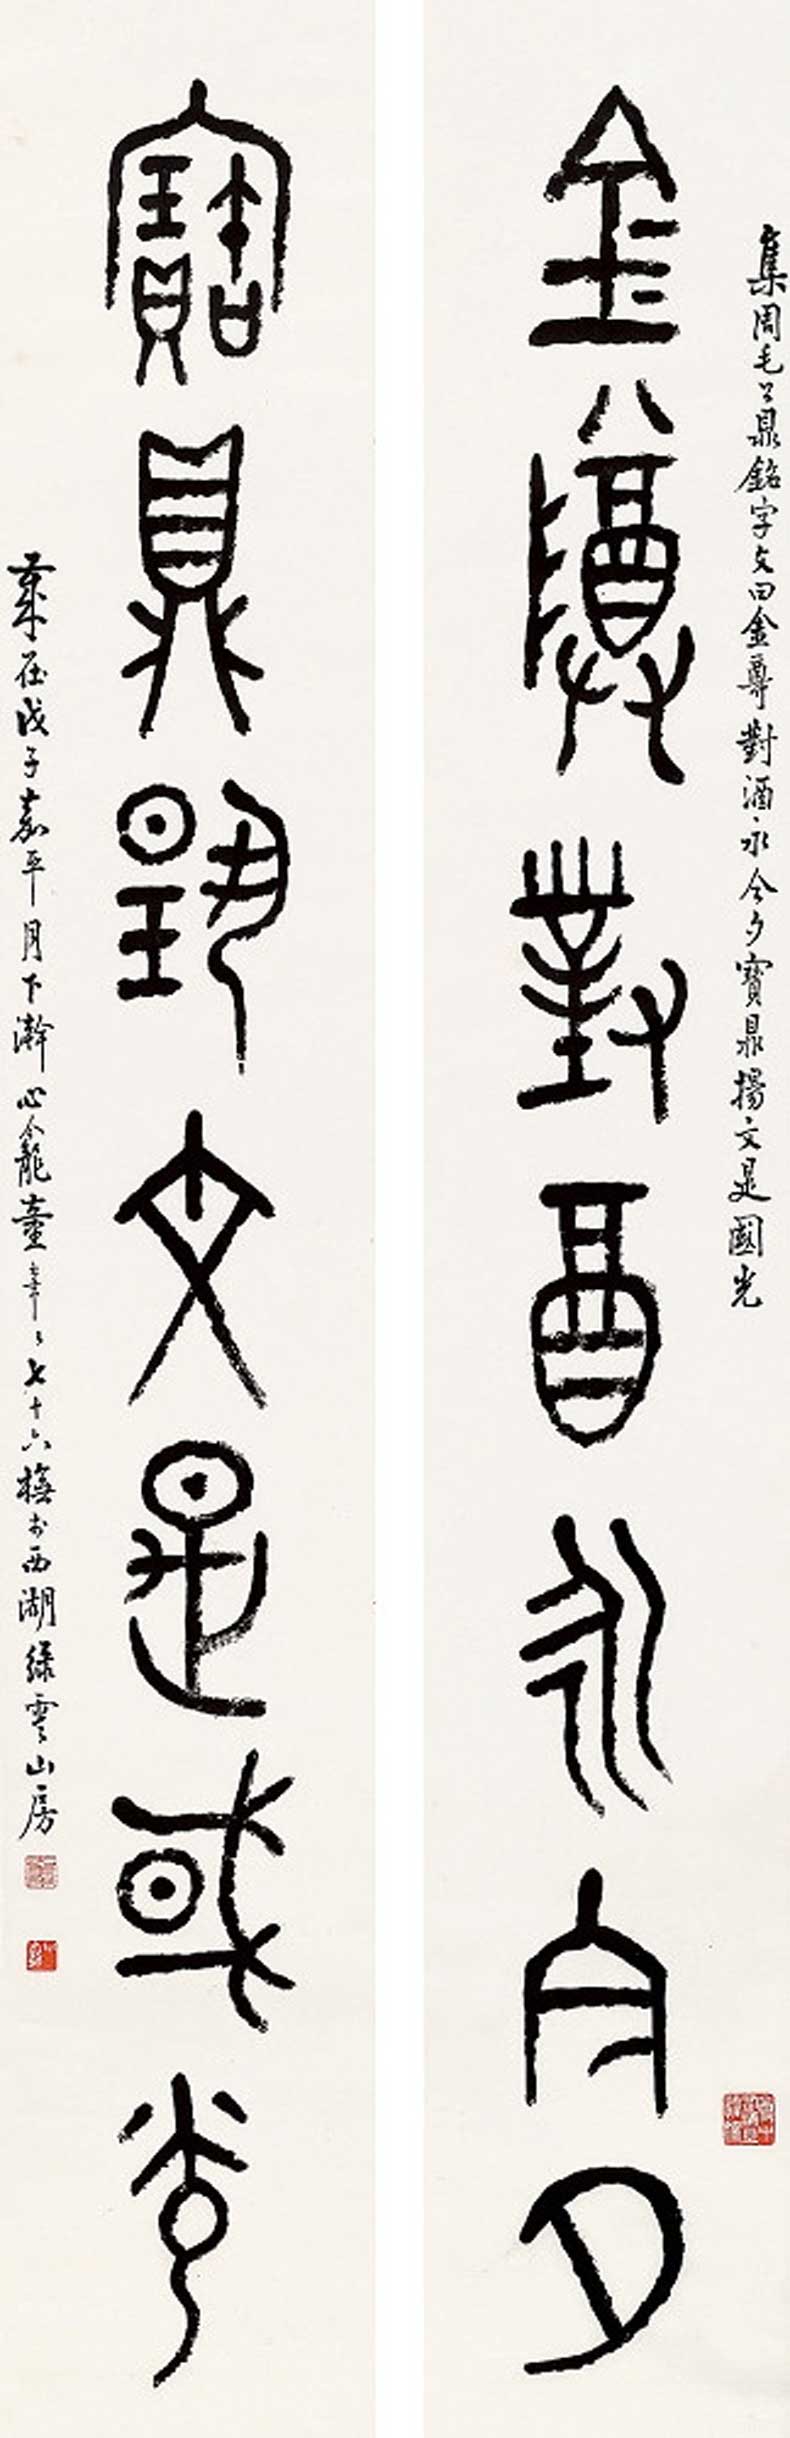 集周毛公鼎銘字文曰金尊對酒永今夕寶鼎揚文是國光
金尊對酉永今夕
寶鼎揚文是或光
歲在戊子嘉平月下澣心龕童大年々七十六橅於西湖綠雲山房